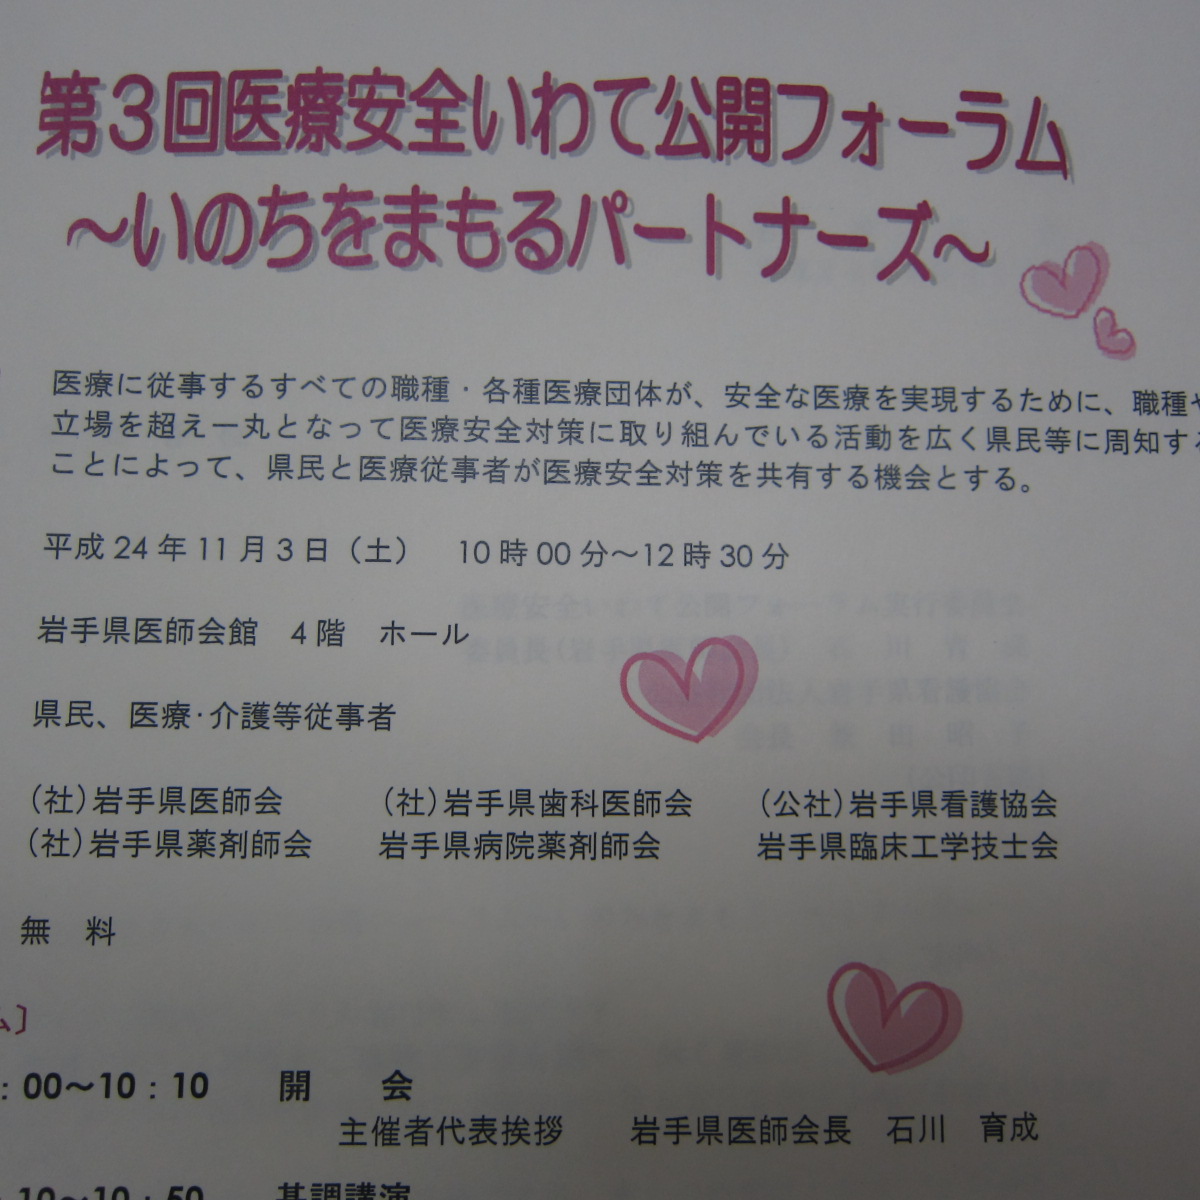 第3回医療安全いわて公開フォーラム
～いのちをまもるパートナーズ～
医療に従事するすべての職種・各種医療団体が、安全な医療を実現するために、職種や
立場を超え一丸となって医療安全対策に取り組んでいる活動を広く県民等に周知する
ことによって、県民と医療従事者が医療安全対策を共有する機会とする。
平成24年11月3日（土）　10時00分～12時30分
岩手県医師会館　4階　ホール
県民、医療･介護等従事者
（社）岩手県医師会　（社）岩手県歯科医師会　（公社）岩手県看護協会
（社）岩手県薬剤師会　岩手県病院薬剤師会　岩手県臨床工学技士会
無　料
ム〕
：00～10：10　開　会
主催者代表挨拶　岩手県医師会長　石川　育成
10～10：50　基調講演